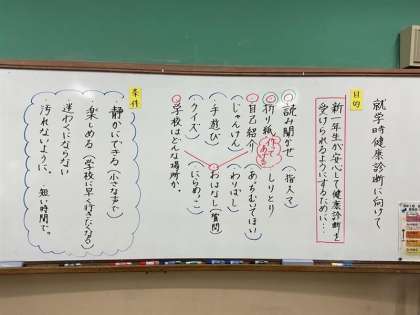 就学時健康診断に向けて
目的
新一年生が安心して健康診断を
受けられるようにするために…
◎読み聞かせ（指人形）
◎折り紙 しりとり
○自己紹介（あっちむいてほい）
（じゃんけん）（わりばし）
（手遊び） ○おはなし（質問）
（クイズ）（にらめっこ）
○学校はどんな場所か。
条件
・静かにできる（小さな声で）
・楽しめる（学校に早く行きたくなる）
・迷わくにならない
・汚れないように、短い時間で。